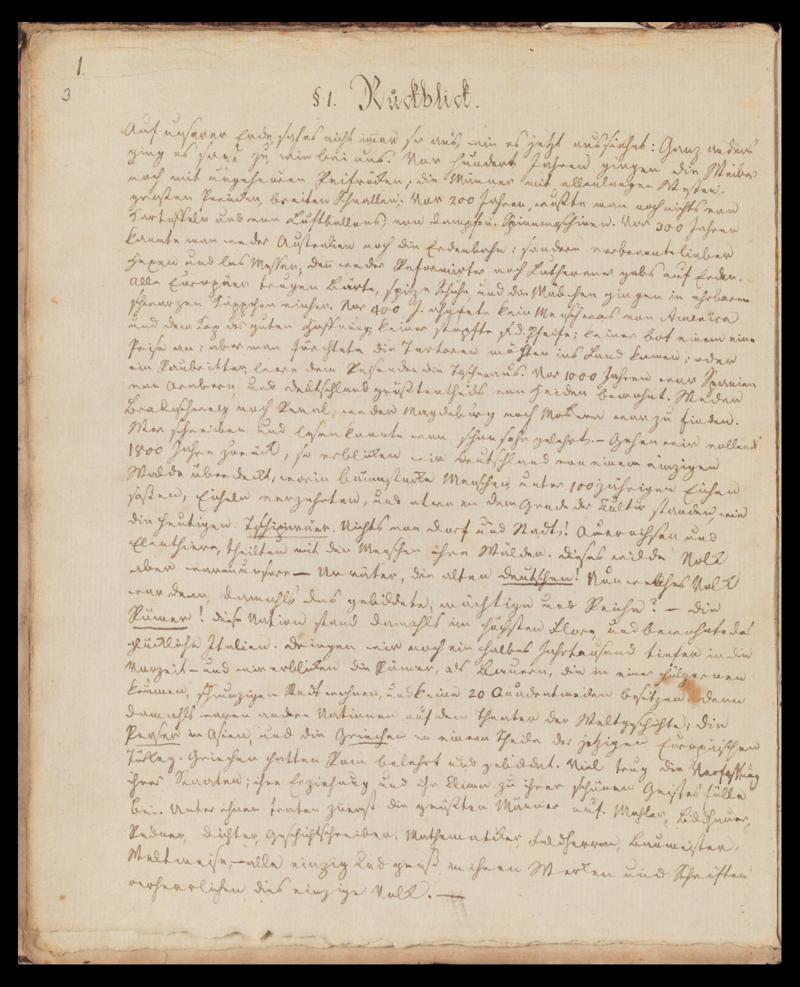 1.
3
§ 1. Rückblick.
Auf unserer Erde sah es nicht immer so aus, wie es jetzt aussiehet: Ganz anders
ging es sonst zu wie bei uns. Vor hundert Jahren gingen die Weiber
noch mit ungeheuren Reifröcken, die Männer mit ellenlangen Westen,
großen Perücken, breiten Schnallen. Vor 200 Jahren, wußte man noch nichts von
Kartoffeln und von Luftballons, von Dampf- Spinnmaschinen. Vor 300 Jahren
kannte man weder Australien noch die Erdenbahn: sondern verbrannte lieber
Hexen und las Messen, denn weder Reformirte noch Lutheraner gabs auf Erden.
Alle Europäer trugen Bärte, spitze Schuhe, und die Mädchen gingen in ehrbaren
schwarzen Käppchen einher. Vor 400 J. ahnete kein Mensch was von America
und dem Cap der guten Hoffnung; keiner stopfte s. Pfeife; keiner bot einem eine
Prise an; aber man fürchtete die Tartaren möchten ins Land kommen; oder
ein Raubritter, leere dem Reisenden die Taschen aus. Vor 1000 Jahren war Spanien
von Arabern, und Deutschland größtentheils von Heiden bewohnt. Weder
Braunschweig noch Reval, weder Magdeburg noch Moskau war zu finden.
Wer schreiben und lesen konnte war schon sehr gelehrt. – Gehen wir vollends
1800 Jahre zurück, so erblicken wir Deutschland von einem einzigen
Walde überdeckt, worin baumstarke Menschen unter 100jährigen Eichen
saßen, Eicheln verzehrten, und etwa an dem Grade der Kultur standen, wie
die heutigen. Nichts von Dorf und Stadt! Auerochsen und
Elenthiere, theilten mit den Menschen ihre Wälder. Dieses wilde Volk
aber waren unsere – Urväter, die alten Deutschen! Nun welches Volk
war denn, damahls das gebildete, mächtige und Reiche? – die
Römer! diese Nation stand damahls im höchsten Flore und bewohnte das
glückliche Italien. Dringen wir noch ein halbes Jahrtausend tiefer in die
Vorzeit – und wir erblicken die Römer, als Bauern, die in einer hölzernen
krummen, schmutzigen Stadt wohnen, und keine 20 Quadratmeilen besitzen; denn
damahls waren andere Nationen auf dem Theater der Weltgeschichte; die
Perser in Asien, und die Griechen in einem Theile der jetzigen Europäischen
Türkey. Griechen hatten Rom belehrt und gebildet. Viel trug die Verfassung
ihrer Staaten; ihre Erziehung und ihr Klima zu ihrer schönen Geistesfülle
bei. Unter ihnen traten zuerst die größten Männer auf. Mahler, Bildhauer,
Redner, Dichter, Geschichtschreiber, Mathematiker Feldherren, Baumeister,
Weltweise – alle einzig und groß in ihren Werken und Schriften
verherrlichen dies einzige Volk. —